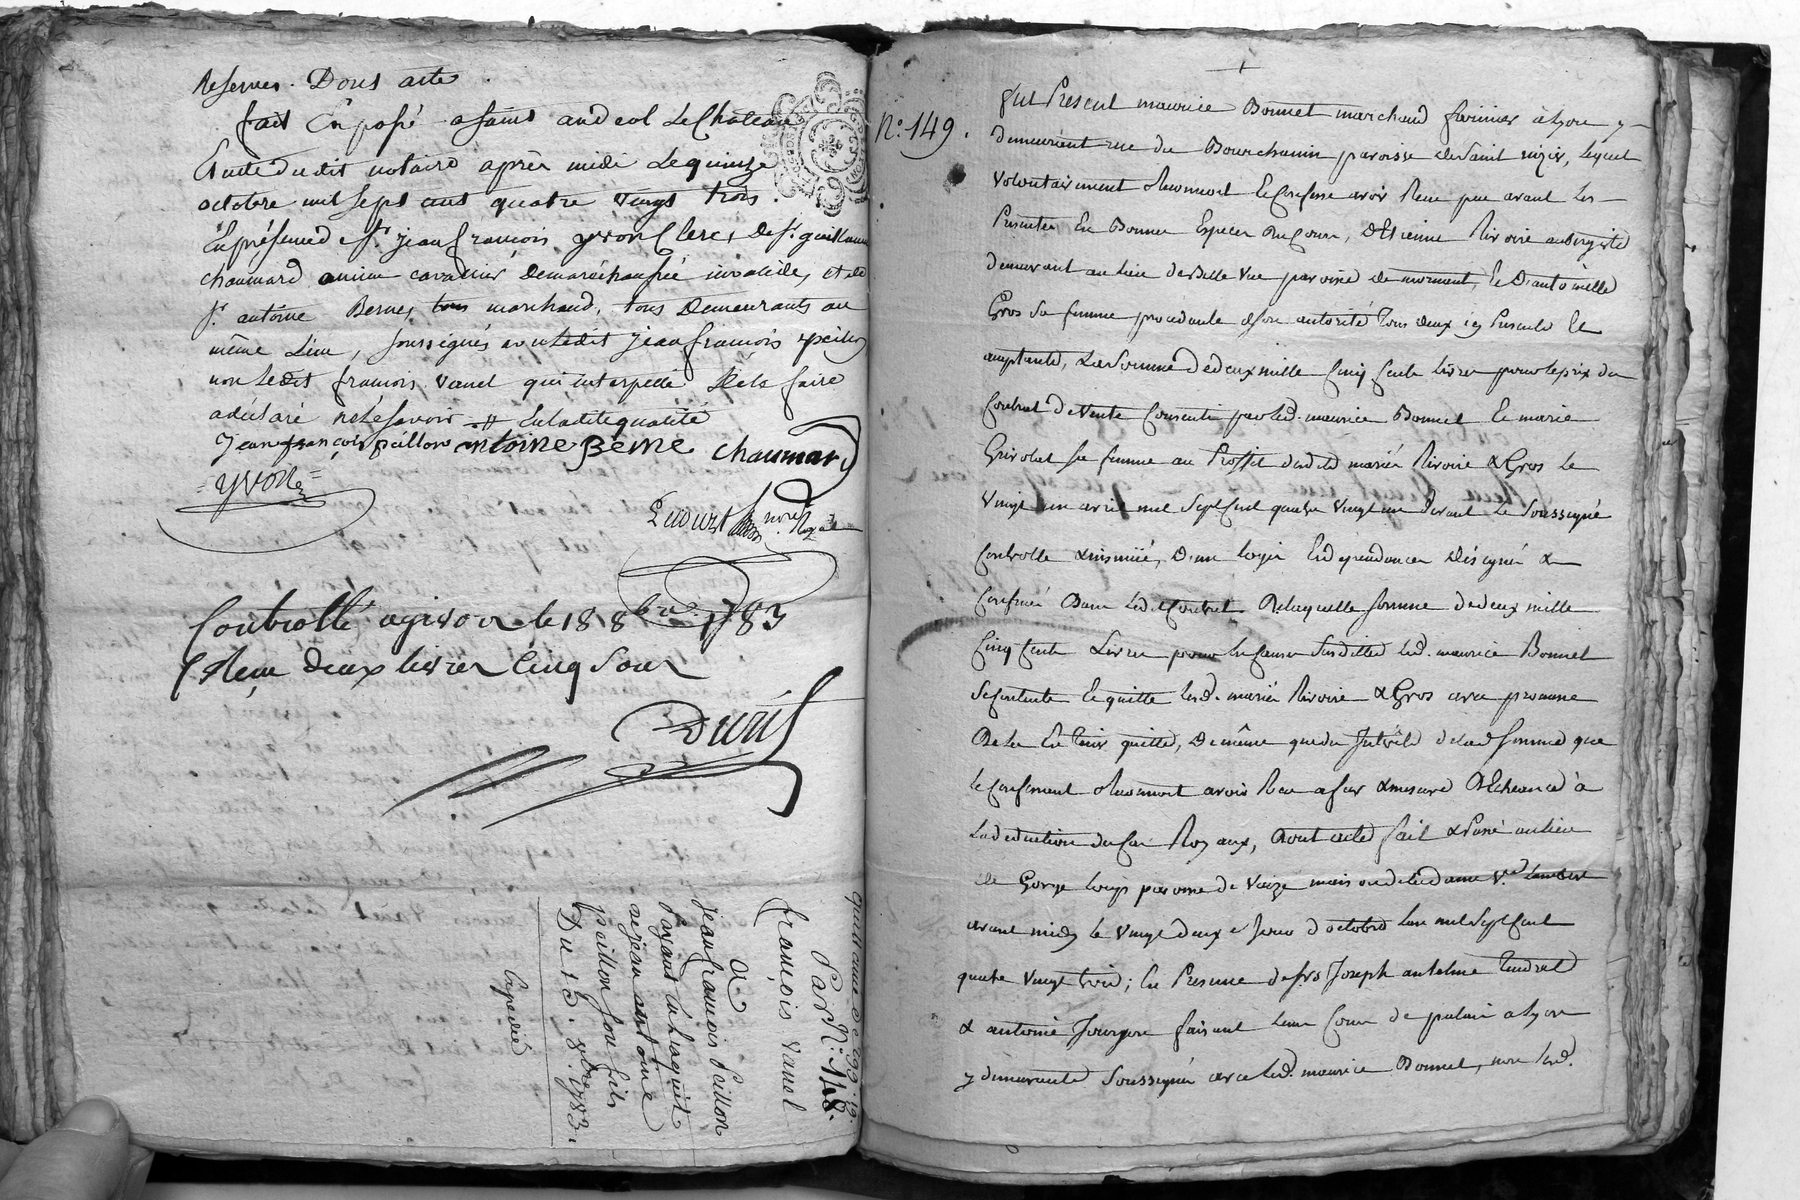 Reserves. Dons acte
fait Et passé a saint andeol Le Château
Etude dudit notaire après midi Le quinze
octobre mil sept cens quatre vingt trois.
En présence de sr. jean françois yvon Clerc, De sr. guillaume
chaumard ancien cavalier de maréchaussée invalide, et de
sr. antoine Berne, tous marchand, tous Demeurants au
même Lieu, soussignés avec ledit jean françois paillon
non ledit françois vanel qui interpellé de le faire
a déclaré ne le savoir en ladite qualité
Jean françois paillon antoine Berne chaumard
yvon
nore Royal
Controllé a givors le 18 8bre 1783
Reçu deux livres Cinq Sous
Duril
quittance de 199lt. 19s.
Par N: 148.
françois vanel
a
jean francois Paillon
Payant en l'acquit
de jean antoine
paillon son fils
Du 15. 8bre 1783.
Expedié
N: 149.
fut Present maurice Bonnet marchand farinier a Lyon y
demeurant rue du Bourchanin paroisse de Saint nizier, lequel
volontairement Reconnoit & Confesse avoir Reçu par avant les
Presentes En Bonnes Especes au Cours, d'Etienne Rivoire aubergiste
demeurant au lieu de Belle Vue paroisse de mornant, & D'antoinette
Gros sa femme procedante de son autorité Tous deux icy Presents &
acceptants, La Somme de deux mille Cinq Cents Livres pour le prix du
Contrat De Vente Consenti par led. maurice Bonnet & marie
Grivolat sa femme au Proffit desdits mariés Rivoire & Gros le
vingt un avril mil Sept Cent quatre vingt un devant Le Soussigné
Controllé & insinué, D'un logis & dependances Désigné &
Confiné Dans led. Contrat De laquelle somme de deux mille
Cinq Cents Livres pour les Causes Susdittes led. maurice Bonnet
se contente & quitte lesd. mariés Rivoire & Gros avec promesse
De les En Tenir quittes, De même que des Interêts de lad. somme que
le Confessant Reconnoit avoir Reçu a fur & mesure D'Echeance à
la deduction des Roy aux, Dont acte fait & Passé au lieu
de Gorge Loup paroisse de Vaize maison de la dame Ve. Lambert
avant midy le vingt deux e Jour d'octobre l'an mil Sept Cent
quatre Vingt trois; En Presence de srs Joseph anselme
& antoine Jourgon faisant leur Cours de palais a Lyon
y demeurants Soussignés avec led. maurice Bonnet, non lesd.